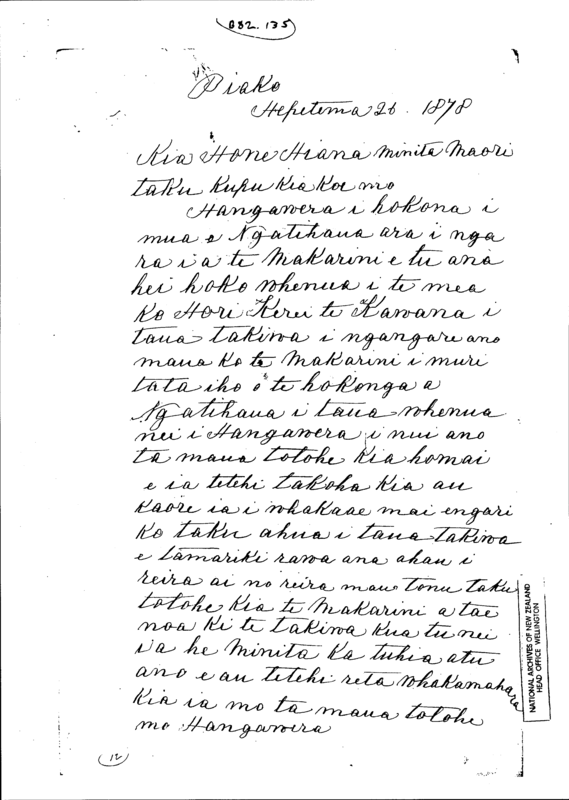 G82.135
Piako
Hepetema 26. 1878
Kia Hone Hiana Minita Maori
taku kupu kia koe mo
Hangawera i hokona i
mua e Ngatihaua ara i nga
ra i a te Makarini e tu ana
hei hoko whenua i te mea
ko Hori Kerei te Kawana i
taua takiwa i ngangare ano
maua ko te Makarini i muri
tata iho o te hokonga a
Ngatihaua i taua whenua
nei i Hangawera i nui ano
ta maua totohe kia homai
e ia tetehi takoha kia au
kaore ia i whakaae mai engari
ko taku ahua i taua takiwa
e tamariki rawa ana ahau i
reira ai no reira mau tonu taku
totohe kia te Makarini a tae
noa ki te takiwa kua tu nei
ia he Minita ka tuhia atu
ano e au tetehi reta whakamahara
kia ia mo ta maua totohe
mo Hangawera
12
NATIONAL ARCHIVES OF NEW ZEALAND
HEAD OFFICE WELLINGTON